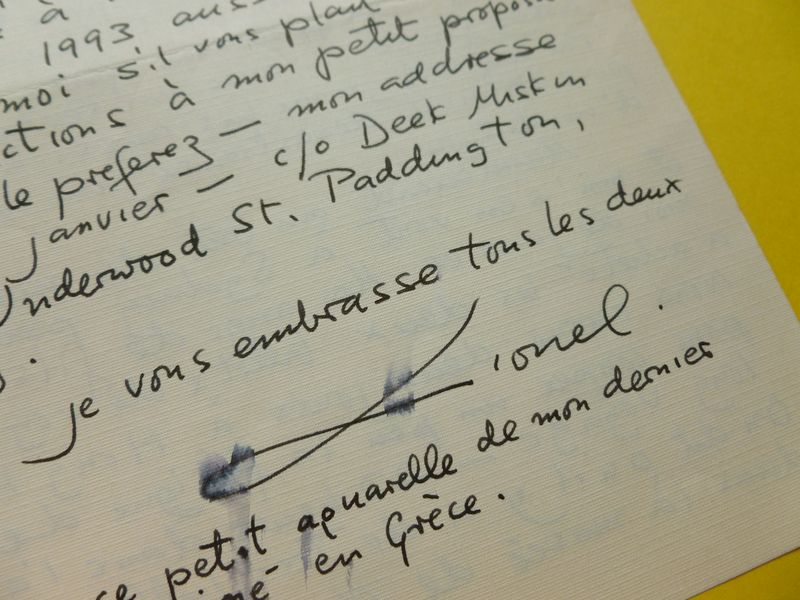 à
1993 aus
moi s.t vous plait
ctions à mon petit propos
le preferez — mon addresse
Janvier — c/o Deek Miskin
Underwood St. Paddington,
je vous embrasse tous les deux
Lionel.
ce petit aquarelle de mon dernier
né en Grèce.